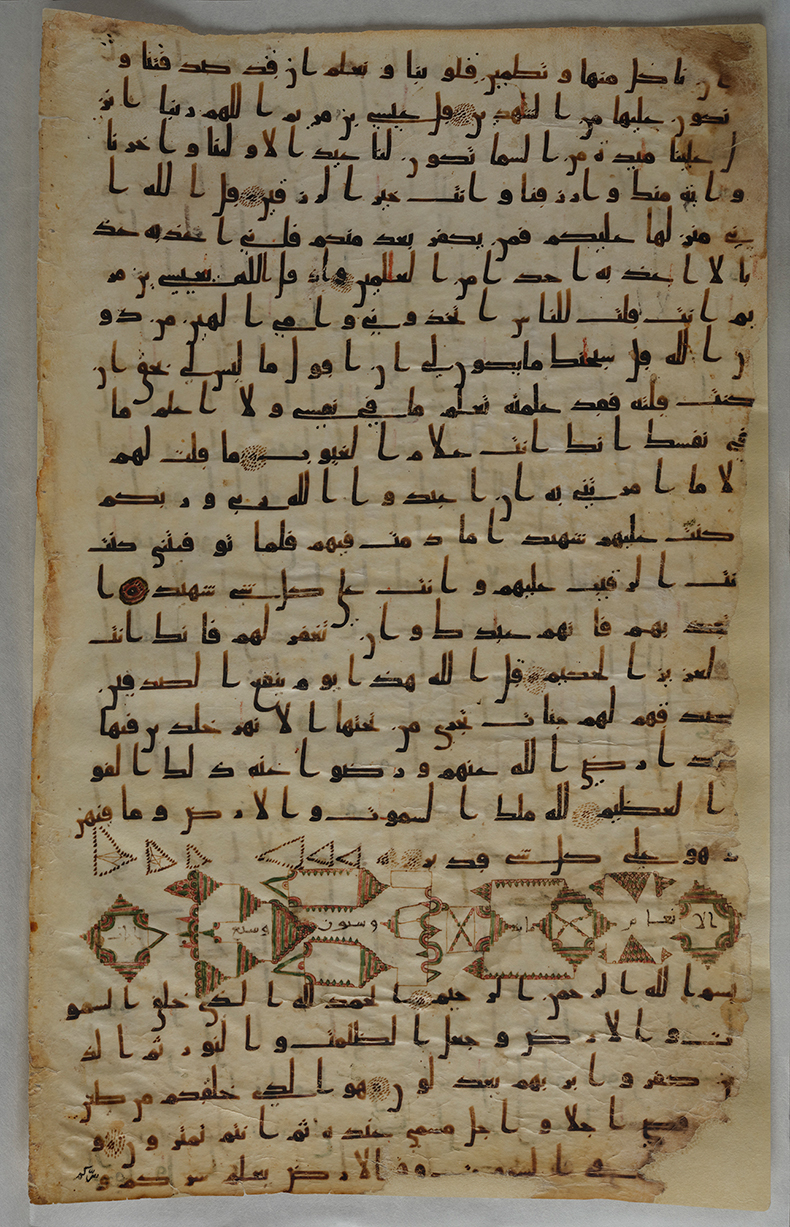 ن ناكل منها و تطمين قلو بنا و نعلم ان قد صد قتنا و
نكون عليها من الشهدين قل عيسى بن مريم اللهم ربنا انز
ل علينا ميدة من السما تكون لنا عيدا لاولنا واخرنا
واية منك وارزقنا وانت خير الرزقين قل الله ا
ني منزلها عليكم فمن يكفر بعد منكم فاني اعذبه عذ
با لا اعذبه احدا من العلمين واذ قل الله يعيسى بن مر
يم انت قلت للناس اتخذوني وامي الهين من دو
ن الله قل سبحنك ما يكون لي ان اقول ما ليس لي بحق ان
كنت قلته فقد علمته تعلم ما في نفسي ولا اعلم ما
في نفسك انك انت علام الغيوب ما قلت لهم
لا ما امرتني به ان اعبدوا الله ربي وربكم
كنت عليهم شهيدا ما دمت فيهم فلما توفيتني كنت
نت الرقيب عليهم وانت على كل شي شهيد ا
تعذبهم فانهم عبدك وان تغفر لهم فانك انت
لعزيز الحكيم قل الله هذا يوم ينفع الصدقين
صدقهم لهم جنات تجري من تحتها الانهر خلدين فيها
بدا رضي الله عنهم ورضوا عنه ذلك الفو
ا لعظيم لله ملك السموت والارض وما فيهن
و هو على كل شي قدير
الا نعام مائة وستون وسبع
بسم الله الرحمن الرحيم الحمد لله الذي خلق السمو
ت والارض وجعل الظلمت والنور ثم الذ
ين كفروا بربهم يعدلون هو الذي خلقكم من طين
قضى اجلا واجل مسمى عنده ثم انتم تمترون و
في السموت وفي الارض يعلم سركم و